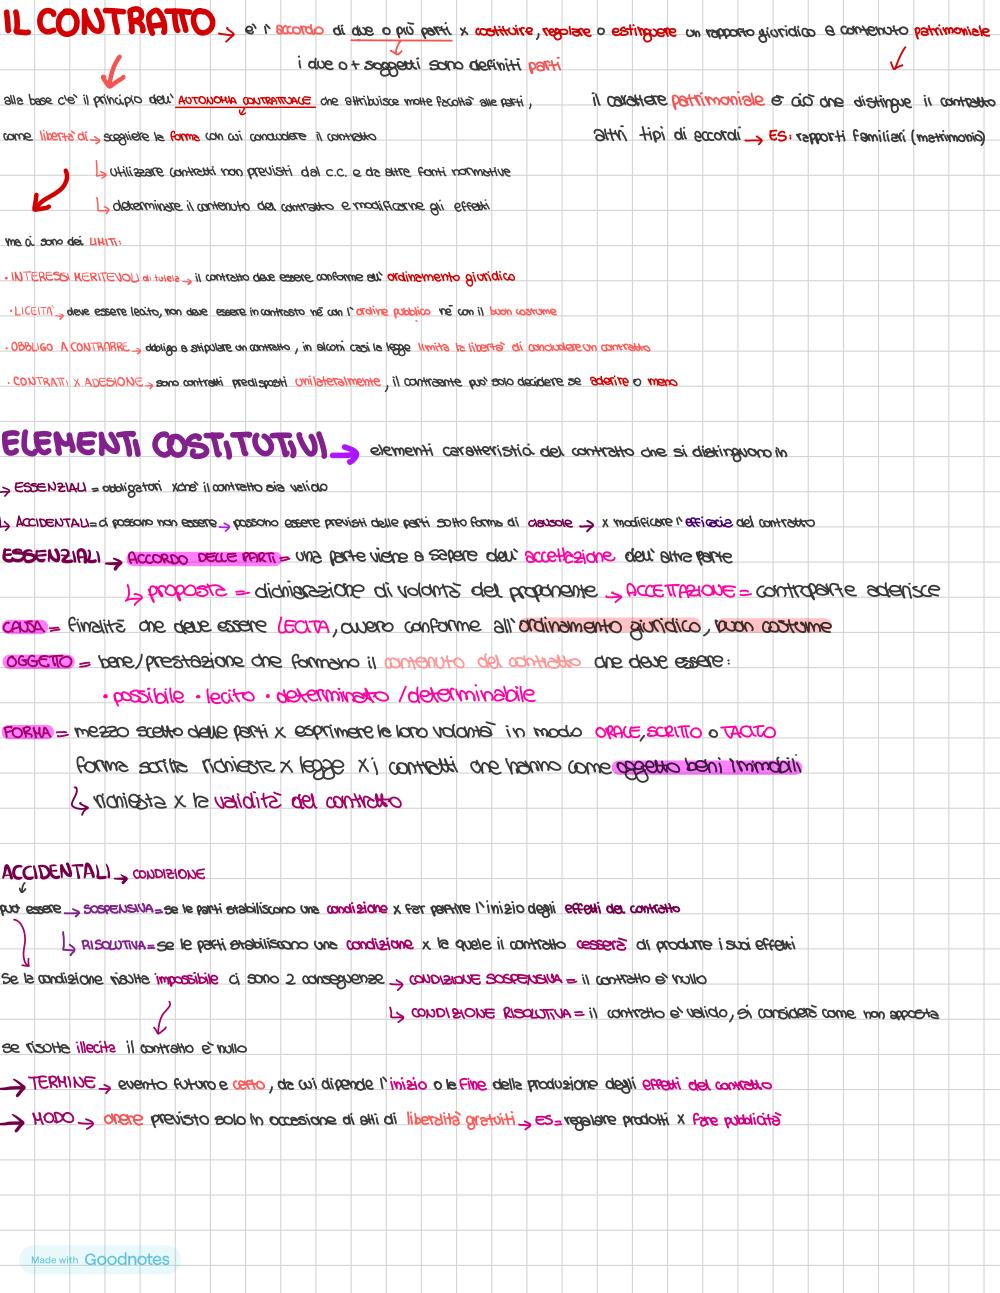 IL CONTRATTO → e' l' accordo di due o più parti x costituire, regolare o estinguere un rapporto giuridico a contenuto patrimoniale
i due o + soggetti sono definiti parti
alla base c'e' il principio dell' AUTONOMIA CONTRATTUALE che attribuisce molte facoltà alle parti,
il carattere patrimoniale e' ciò che distingue il contratto
come liberta' di → scegliere la forma con cui concludere il contratto
altri tipi di accordi → ES: rapporti familiari (matrimonio)
↳ utilizzare contratti non previsti dal c.c. e da altre fonti normative
↳ determinare il contenuto del contratto e modificarne gli effetti
ma ci sono dei LIMITI:
• INTERESSI MERITEVOLI di tutela → il contratto deve essere conforme all' ordinamento giuridico
• LICEITA' → deve essere lecito, non deve essere in contrasto nè con l' ordine pubblico nè con il buon costume
• OBBLIGO A CONTRARRE → obbligo a stipulare un contratto, in alcuni casi la legge limita la libertà di concludere un contratto
• CONTRATTI X ADESIONE → sono contratti predisposti unilateralmente, il contraente puo' solo decidere se aderire o meno
ELEMENTI COSTITUTIVI → elementi caratteristici del contratto che si distinguono in
→ ESSENZIALI = obbligatori xche' il contratto sia valido
↳ ACCIDENTALI = ci possono non essere → possono essere previsti dalle parti sotto forma di clausole → x modificare l' efficacia del contratto
ESSENZIALI → ACCORDO DELLE PARTI = una parte viene a sapere dell' accettazione dell' altra parte
↳ proposta = dichiarazione di volontà del proponente → ACCETTAZIONE = controparte aderisce
CAUSA = finalità che deve essere LECITA, ovvero conforme all' ordinamento giuridico, buon costume
OGGETTO = bene/prestazione che formano il contenuto del contratto che deve essere:
• possibile • lecito • determinato / determinabile
FORMA = mezzo scelto dalle parti x esprimere la loro volontà in modo ORALE, SCRITTO o TACITO
forma scritta richiesta x legge x i contratti che hanno come oggetto beni immobili
↳ richiesta x la validità del contratto
ACCIDENTALI → CONDIZIONE
puo' essere → SOSPENSIVA = se le parti stabiliscono una condizione x far partire l'inizio degli effetti del contratto
↳ RISOLUTIVA = se le parti stabiliscono una condizione x la quale il contratto cesserà di produrre i suoi effetti
Se la condizione risulta impossibile ci sono 2 conseguenze → CONDIZIONE SOSPENSIVA = il contratto e' nullo
↳ CONDIZIONE RISOLUTIVA = il contratto e' valido, si considera come non apposta
se risulta illecita il contratto e' nullo
→ TERMINE → evento futuro e certo, da cui dipende l'inizio o la fine della produzione degli effetti del contratto
→ MODO → onere previsto solo in occasione di atti di liberalità gratuiti → ES = regalare prodotti x fare pubblicità
Made with Goodnotes